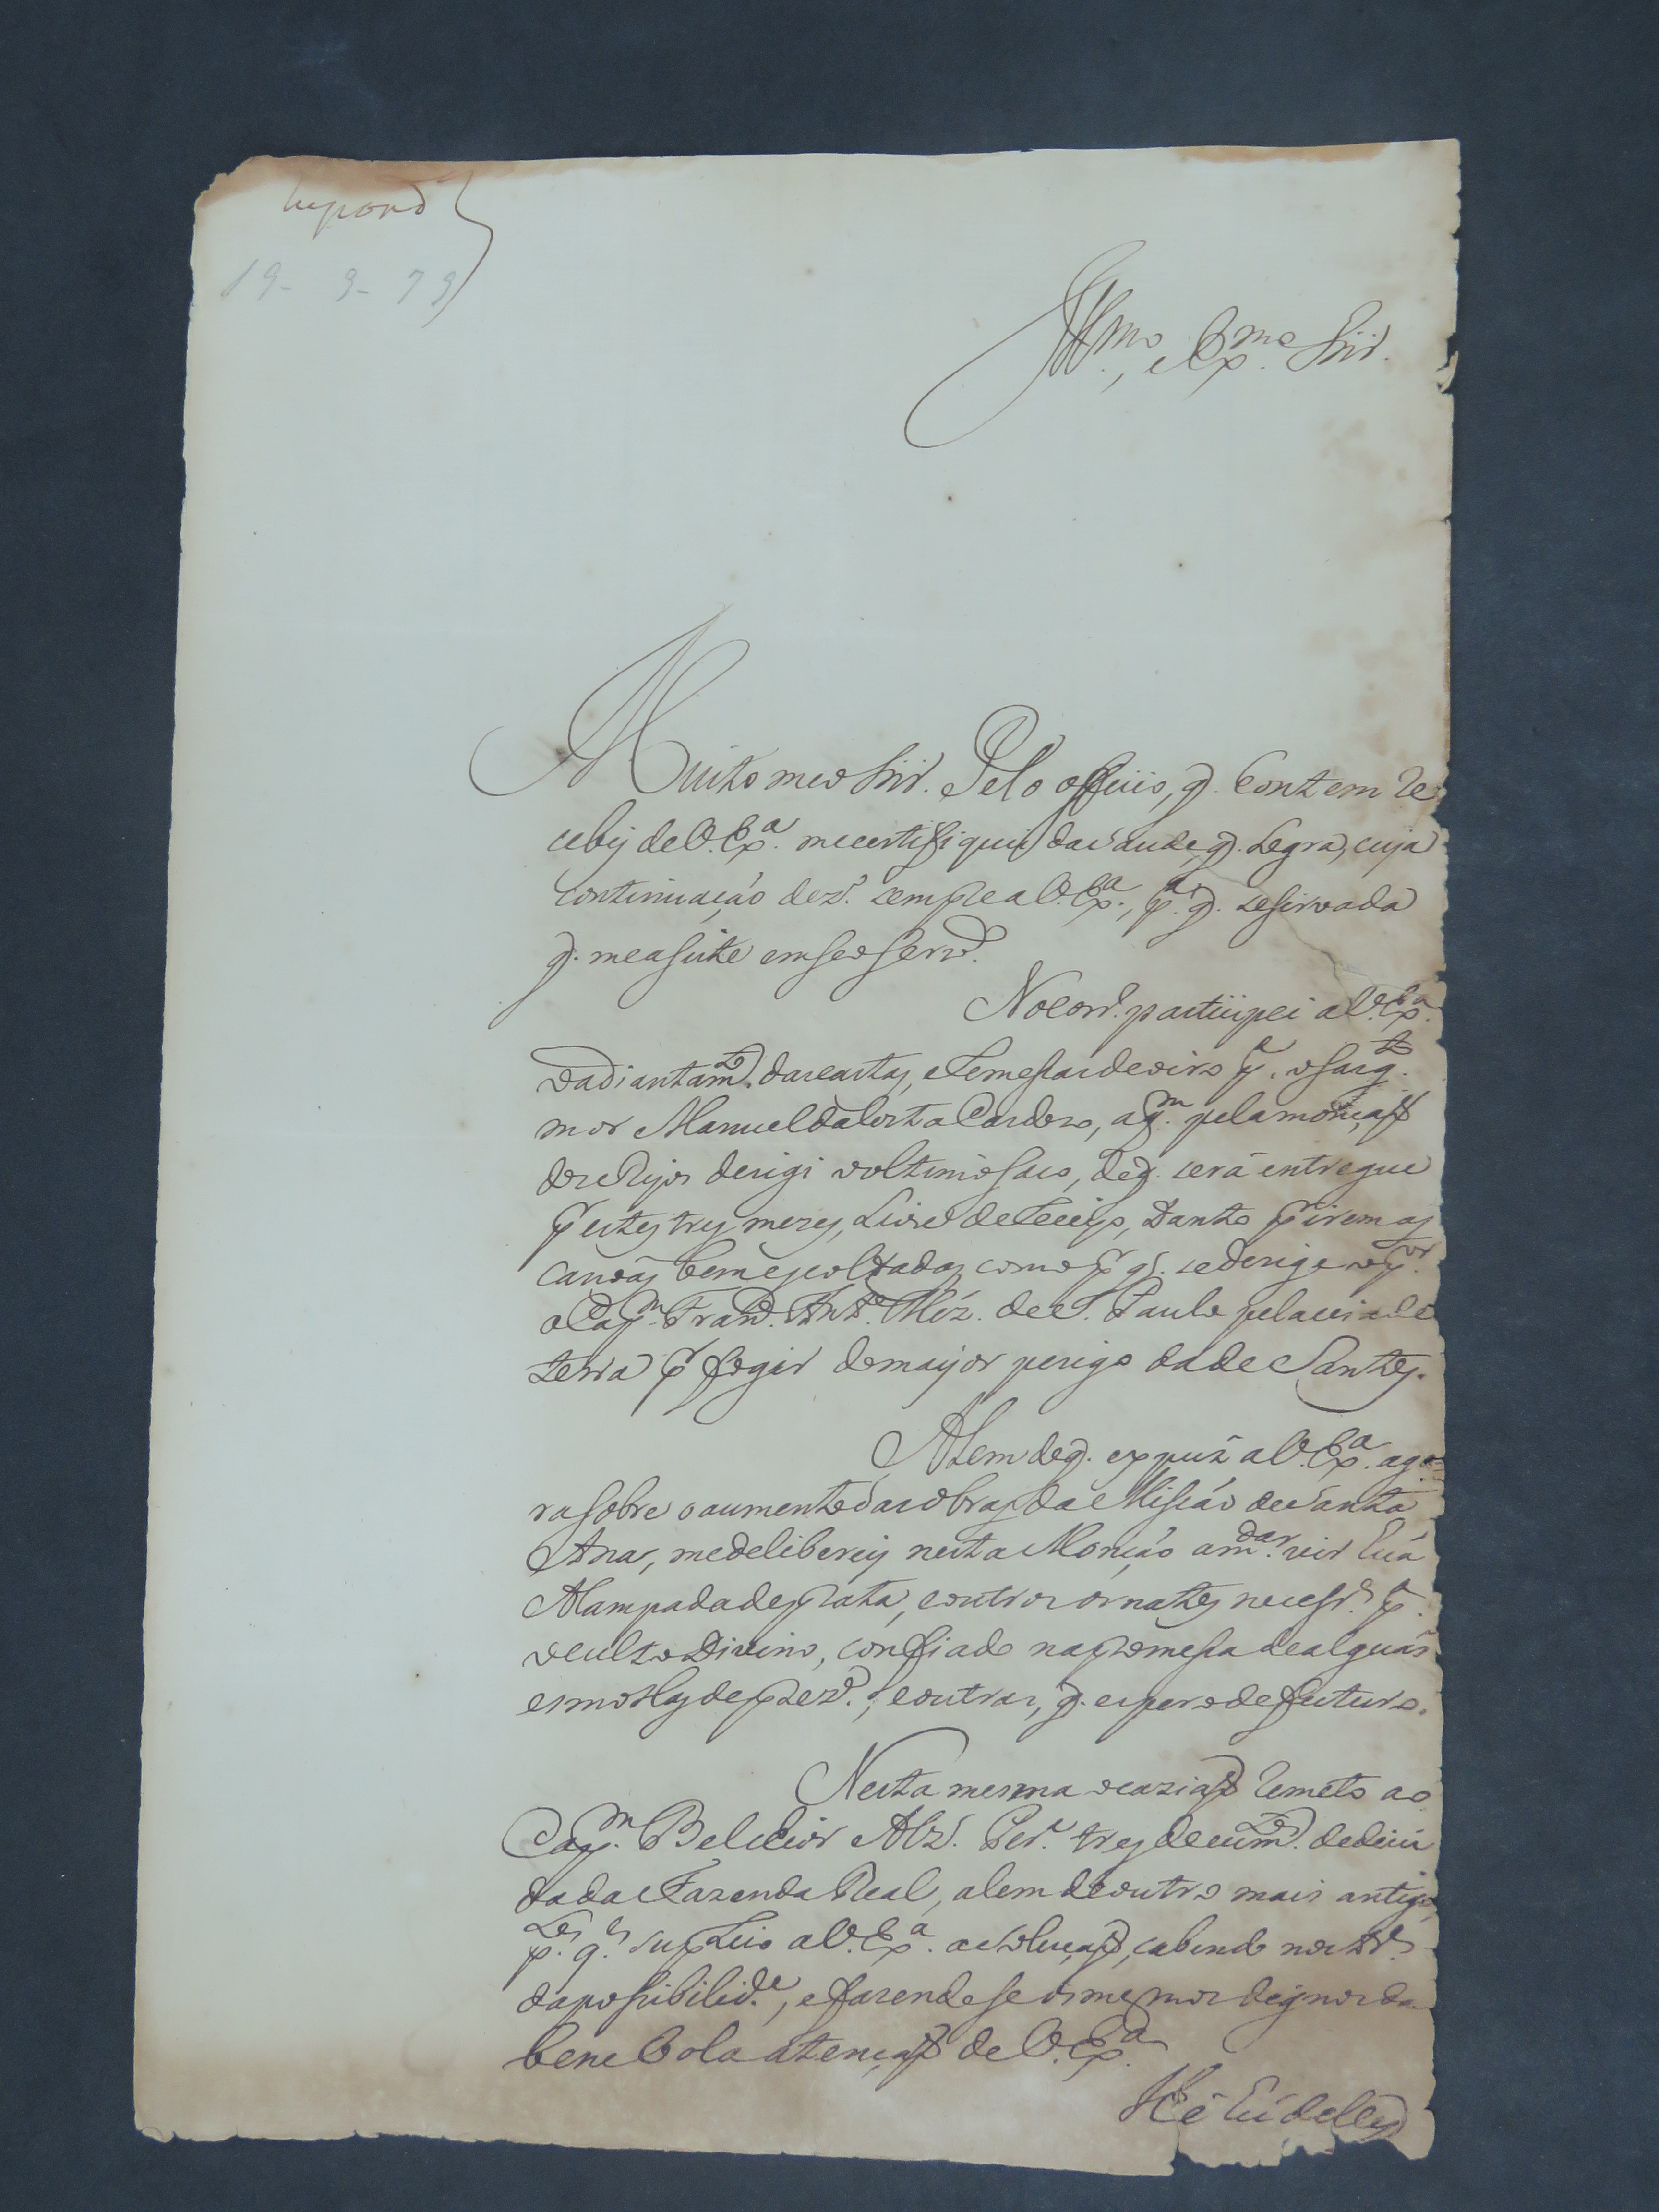 respond
19 - 9 - 79
Illmo., e Exmo. Snr.
Muito meo Snr. Pelo officio, q. hontem re
cebij de V. Exa. me certifiquei da saude, q. Logra, cuja
continuação dezo. sempre a V. Exa., pa. q. reservada
q. me asiste em seo servo.
No corro. participei a V. Exa.
o adiantamto. das cartas, e remessas de oiro pa. o Sargto.
mor Manuel da Costa Cardozo, a qm. pela monçaõ
dos e Rijos derigi o oltimo Saco, de q. será entregue
pr. estes tres mezes, Livre de Perigo, tanto pr. irem as
canôas bem escoltadas como pr. q. se derige o pr.
o Capm. Franco. Anto. de S. Paulo pela via de
terra pr. fogir do mayor perigo da de Santos.
Alem de q. expuz a V. Exa. ago
ra sobre o aumento das obras da Misáo de Santa
Ana, me deliberey nesta Monçáo a mdar. vir huá
Alampada de prata, e outros ornatos necesros. pa.
o culto Divino, confiado na promessa de alguás
esmollas de prezo., e outras, q. espero de futuro.
Nesta mesma ocaziaõ remeto ao
Capm. Belchior Alz. Pera. tres documtos. de divi
da da Fazenda Real, alem de outro mais antigo,
plos. qes. suplico a V. Exa. a soluçaõ, cabendo nos tos.
da posibilide., e fazendose os mesmos dignos da
benebola atençaõ de V. Exa.
Hé hú delles